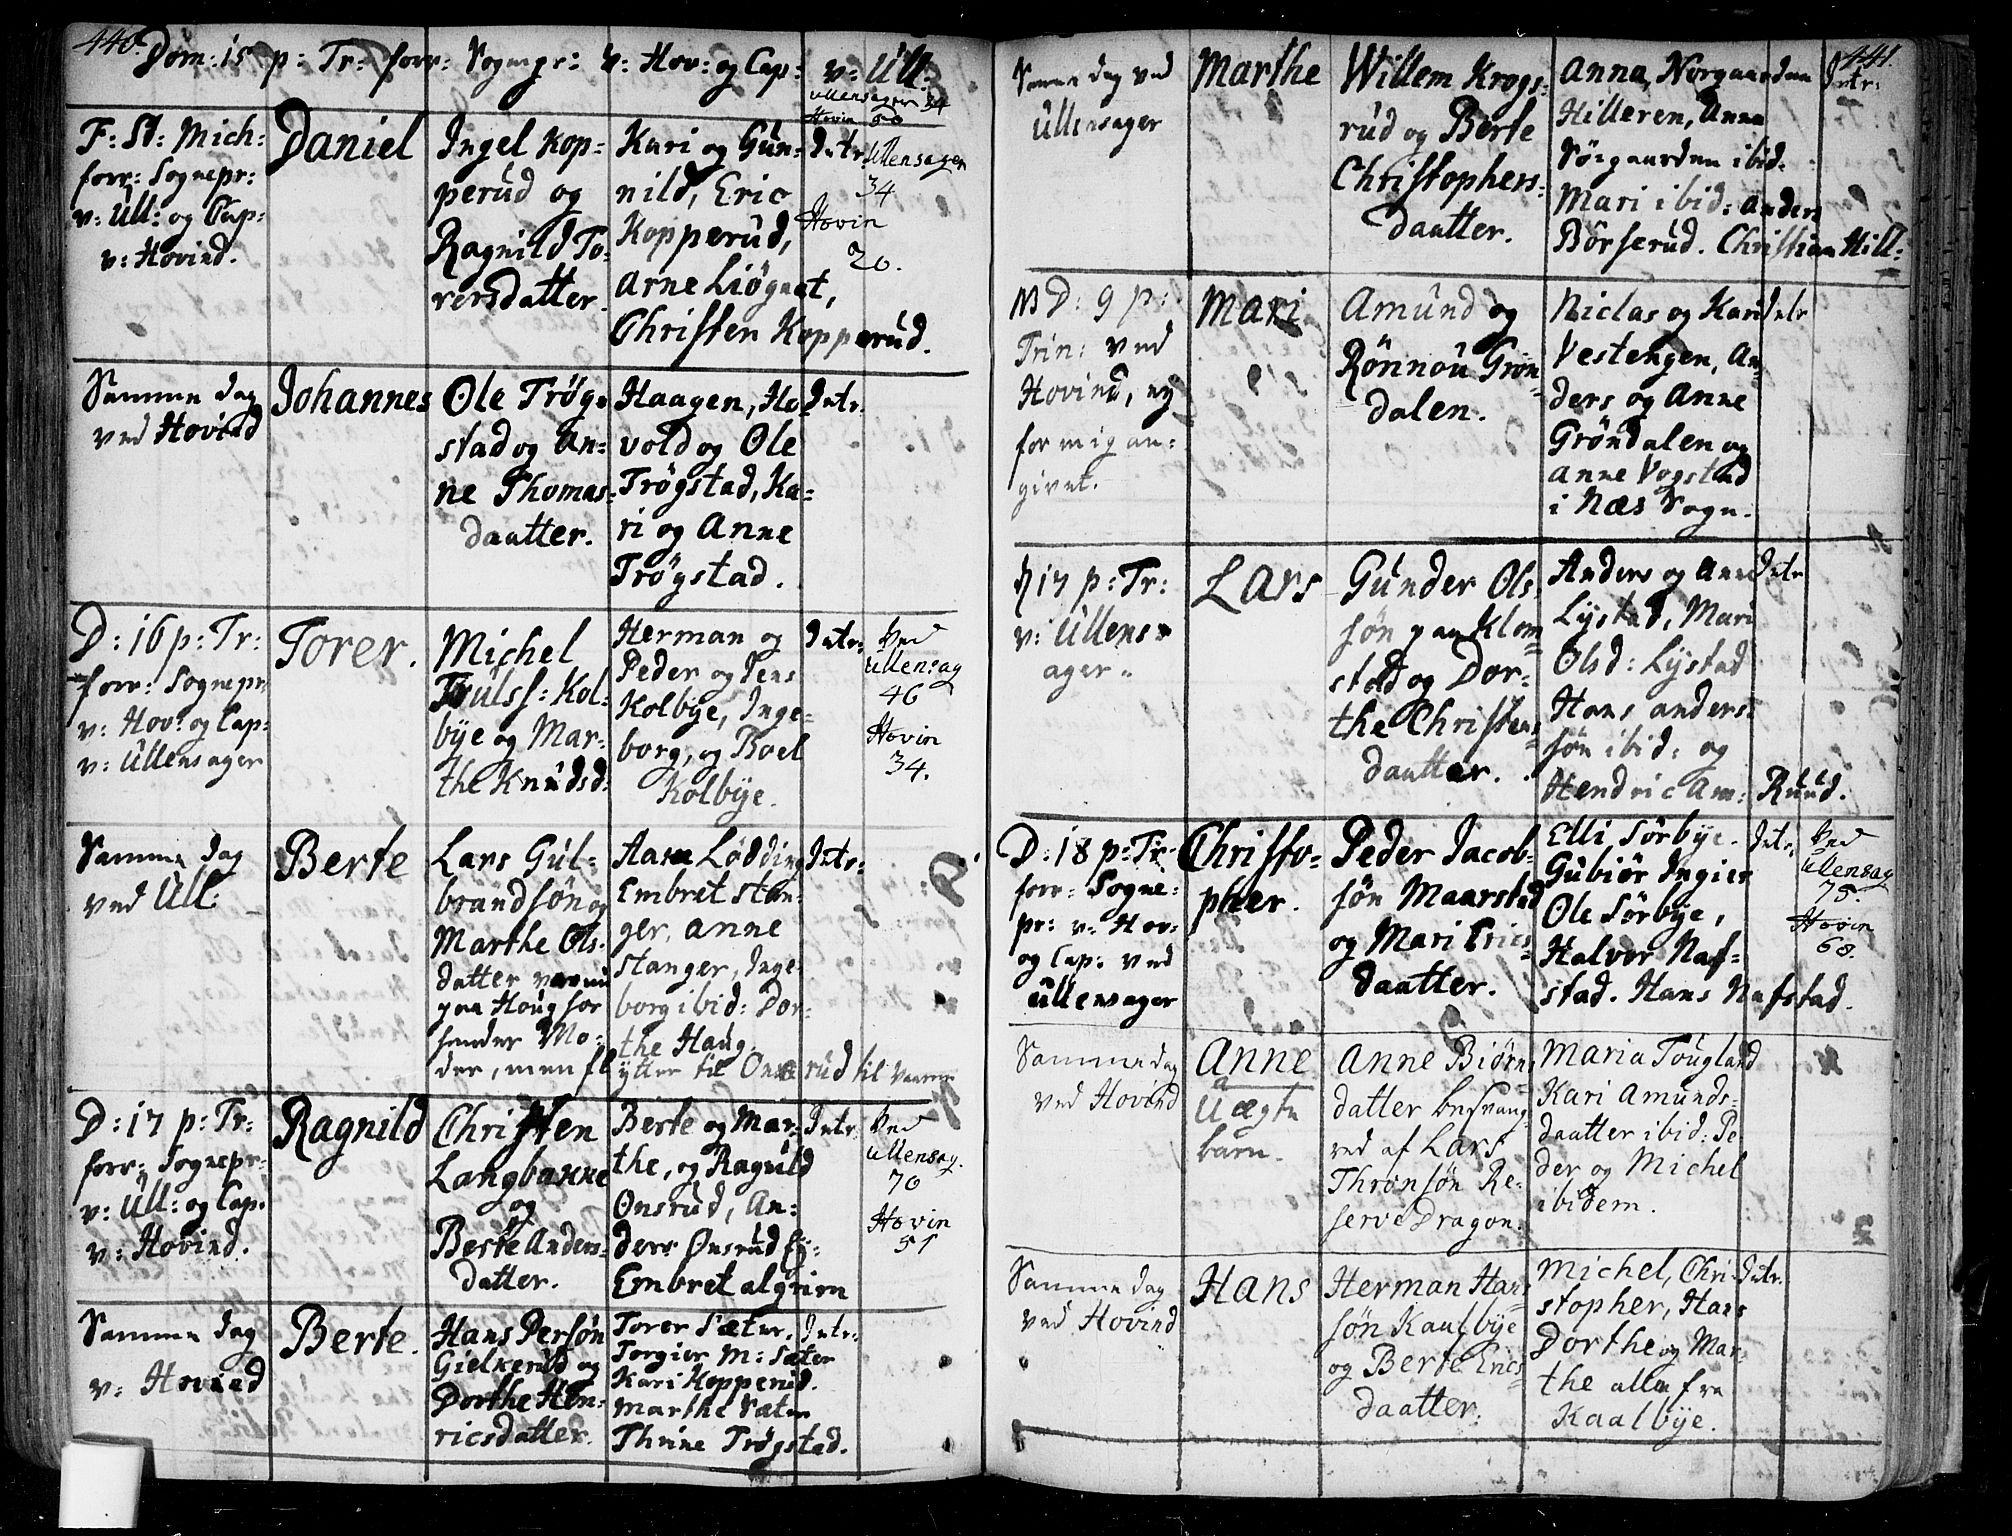 440.
Dom: 15 p: Tr: forr: Sognepr: v: Hov: og Cap: v: Ull:
Ullensager 34
Hovin 50
F: St: Mich:
forr: Sognepr:
v: Ull: og Cap:
v: Hovind.
Daniel
Ingel Kop-
perud og
Ragnild To-
rersdatter.
Kari og Gun-
nild, Eric
Kopperud,
Arne Liøgnet,
Christen Kopperud.
Intr.
Ullensager
34
Hovin
20.
Samme dag
ved Hovind
Johannes
Ole Trøg-
stad og An-
ne Thomas-
daatter.
Haagen, Ho-
vold og Ole
Trøgstad, Ka-
ri og Anne
Trøgstad.
Intr.
D: 16 p: Tr:
forr: Sognepr
v: Hov: og Cap:
v: Ullensager
Torer.
Michel
Trulss: Kol-
bye og Mar-
the Knudsd.
Herman og
Peder og Jens
Kolbye, Inge-
borg, og Boel
Kolbye.
Intr:
Ved
Ullensag
46
Hovin
34.
Samme dag
ved Ull:
Berte
Lars Gul-
brandsøn og
Marthe Ols-
datter
paa Houg for
hendes Mo-
der, men flytter til Onsrud til Vaaren
Aase Lødding
Embret Stan-
ger, Anne
Stanger, Inge-
borg ibid: Dor-
the Haug.
Intr:
D: 17 p: Tr:
forr: Sognepr:
v: Ull: og Cap.
v: Hovind.
Ragnild
Christen
Langbakke
og
Berte Anders-
datter.
Berte og Mar-
the, og Ragnild
Onsrud, An-
ders Onsrud og
Embret Algrim
Intr:
Ved
Ullensag.
70
Hovin
51
Samme dag
v: Hovind
Berte.
Hans Persøn
Gielkerud og
Dorthe Hen-
ricsdatter.
Torer Sæter.
Torgier M: Sæter
Kari Kopperud.
Marthe Sæter
Thrine Trøgstad.
Intr:
441.
Samme dag ved
Ullensager
Marthe
Willem Krogs-
rud og Berte
Christophers-
daatter.
Anna Norgaarden
Hilleren, Anna
Sørgaarden ibid.
Mari ibid: Anders
Børserud. Christian Hill:
Intr:
NB D: 9 p:
Trin: ved
Hovind, ey
for mig an-
givet.
Mari
Amund og
Rønnou Grøn-
dalen.
Niclas og Kari
Vestengen, An-
ders og Anne
Grøndalen og
Anne Vogstad
i Næs Sogn.
Intr
17 p: Tr:
v: Ullens-
ager.
Lars
Gunder Ols
søn paa Klom-
stad og Dor-
the Christens-
daatter.
Anders og Anne
Lystad, Mari
Olsd: Lystad
Hans Anders-
søn ibid: og
Hendric Am: Ruud.
Intr
D: 18 p: Tr:
forr: Sogne-
pr: v: Hov:
og Cap: ved
Ullensager
Christo-
pher.
Peder Jacob-
søn Maarstad
og Mari Erics-
daatter.
Elli Sørbye.
Gubiør Ingier
Ole Sørbye,
Halvor Naf-
stad. Hans Nafstad.
Intr.
Ved
Ullensag
75.
Hovin
68.
Samme dag
ved Hovind
Anne
Uægte
barn.
Anne Biørns
datter besvang-
red af Lars
Thronsøn Re-
serve Dragon.
Maria Tougland
Kari Amunds-
daatter ibid: Pe-
der og Michel
ibidem.
Samme dag
ved Hovind
Hans
Herman Hans
søn Kaulbye
og Berte Erics-
daatter.
Michel, Chri-
stopher, Hans
Dorthe og Mar-
the alle fra
Kaalbye.
Intr.